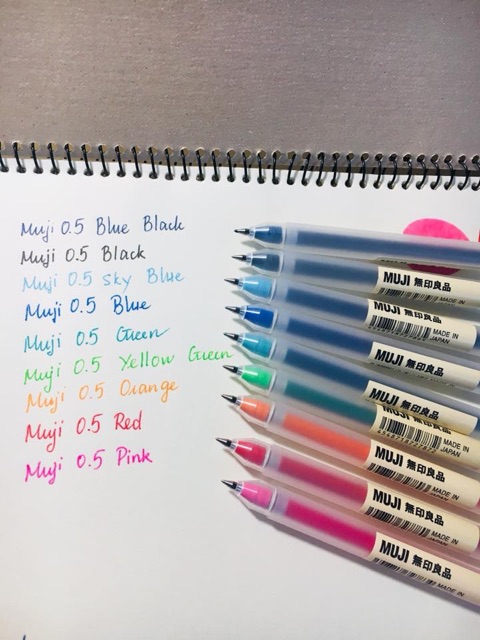 Muji 0.5 Blue Black
Muji 0.5 Black
Muji 0.5 Sky Blue
Muji 0.5 Blue
Muji 0.5 Green
Muji 0.5 Yellow Green
Muji 0.5 Orange
Muji 0.5 Red
Muji 0.5 Pink
MUJI 無印良品
MADE IN
MUJI 無印良品
MADE IN
JAPAN
MUJI 無印良品
MUJI 無印良品
MADE IN
JAPAN
MUJI 無印良品
MADE IN
JAPAN
MUJI 無印良品
MADE IN
JAPAN
MUJI 無印良品
MADE IN